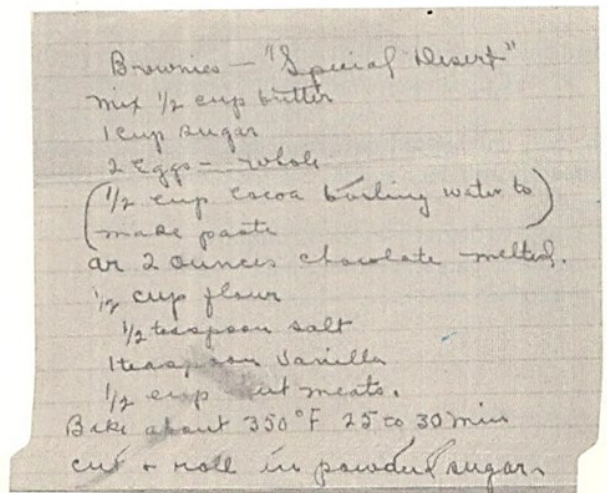 Brownies — "Special Desert"
mix 1/2 cup butter
1 cup sugar
2 Eggs — whole
(1/2 cup cocoa boiling water to
make paste)
or 2 ounces chocolate melted.
1/2 cup flour
1/2 teaspoon salt
1 teaspoon Vanilla
1/2 cup nut meats.
Bake about 350°F 25 to 30 min
cut + roll in powded sugar.